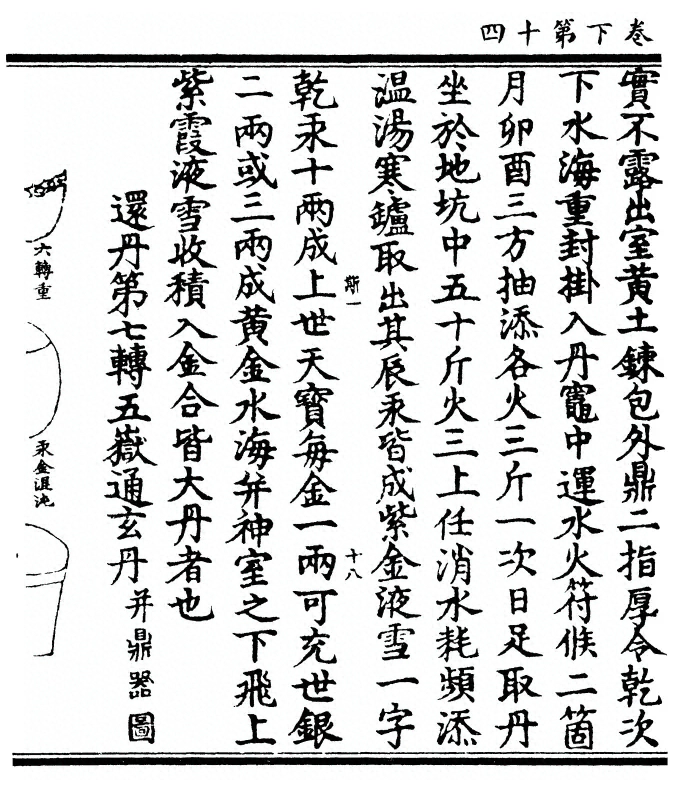 卷下第十四
實不露出室黄土鍊包外鼎二指厚令乾次
下水海重封掛入丹竈中運水火符候二箇
月卯酉三方抽添各火三斤一次日足取丹
坐於地坑中五十斤火三上任消水耗頻添
温湯寒鑪取出其辰汞皆成紫金液雪一字
斯一
十八
乾汞十兩成上世天寳每金一兩可充世銀
二兩或三兩成黄金水海并神室之下飛上
紫霞液雪收積入金合皆大丹者也
還丹第七轉五嶽通玄丹并鼎器圖
六轉重
汞金混沌